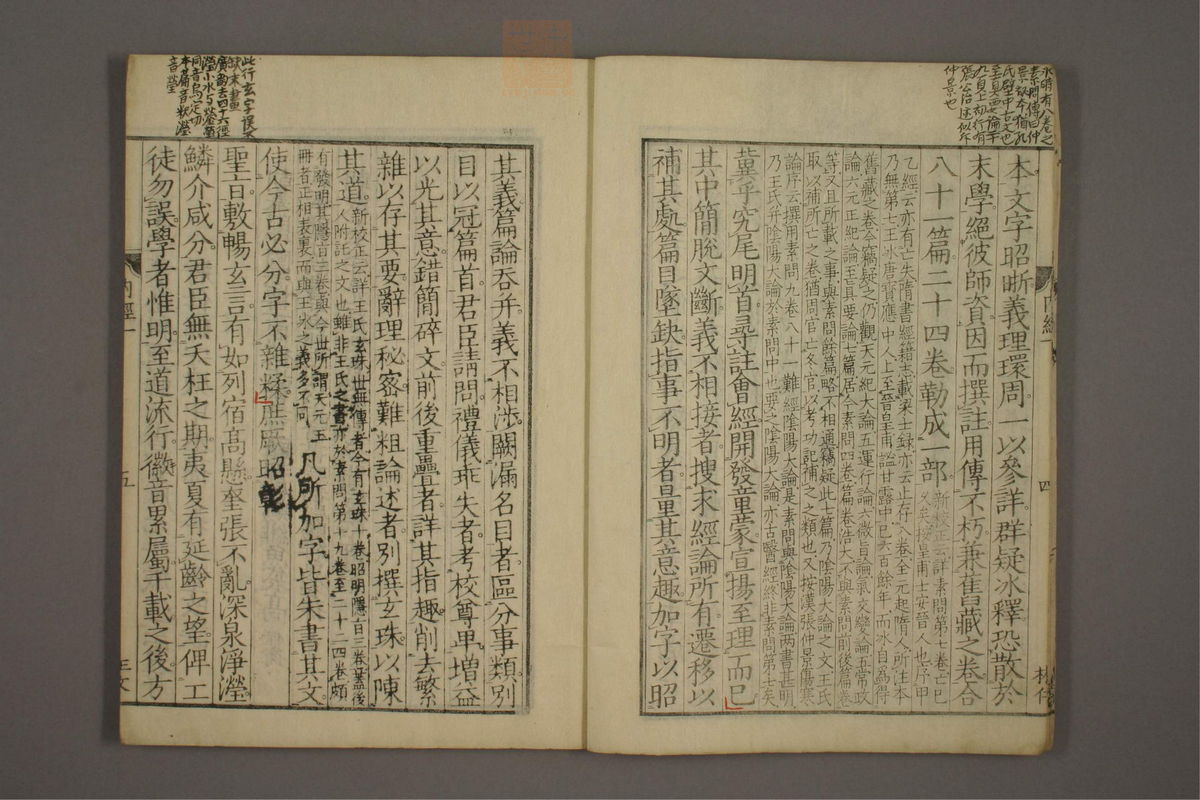 本文字昭晣義理環周一以參詳群疑冰釋恐散於
末學絕彼師資因而撰註用傳不朽兼舊藏之卷合
八十一篇二十四卷勒成一部
新校正云詳素問第七卷亡已
久矣按皇甫士安晉人也序甲
乙經云亦有亡失隋書經籍志載梁七録亦云止存八卷全元起隋人所注本
乃無第七王冰唐寶應中人上至晉皇甫謐甘露中已六百餘年而冰自為得
舊藏之卷今竊疑之仍觀天元紀大論五運行論六微旨論氣交變論五常政
論六元正紀論至真要論七篇居今素問四卷篇卷浩大不與素問前後篇卷
等又且所載之事與素問餘篇略不相通竊疑此七篇乃陰陽大論之文王氏
取以補所亡之卷猶周官亡冬官以考功記補之之類也又按漢張仲景傷寒
論序云撰用素問九卷八十一難經陰陽大論是素問與陰陽大論两書甚明
乃王氏并陰陽大論於素問中也要之陰陽大論亦古醫經終非素問第七矣
冀乎究尾明首尋註會經開發童蒙宣揚至理而已
其中簡脫文斷義不相接者搜求經論所有遷移以
補其處篇目墜缺指事不明者量其意趣加字以昭
其義篇論吞并義不相涉闕漏名目者區分事類別
目以冠篇首君臣請問禮儀乖失者考校尊卑增益
以光其意錯簡碎文前後重疊者詳其指趣削去繁
雜以存其要辭理秘密難粗論述者別撰玄珠以陳
其道
新校正云詳王氏玄珠世無傳者今有玄珠十卷昭明隱旨三卷蓋後
人附託之文也雖非王氏之書亦於素問第十九卷至二十四卷頗
有發明其隱旨三卷與今世所謂天元玉
冊者正相表裏而與王冰之義多不同
凡所加字皆朱書其文
使今古必分字不雜糅庶厥昭彰
聖旨敷暢玄言有如列宿高懸奎張不亂深泉淨瀅
鱗介咸分君臣無夭枉之期夷夏有延齡之望俾工
徒勿誤學者惟明至道流行徽音累屬千載之後方
内經一
五
四